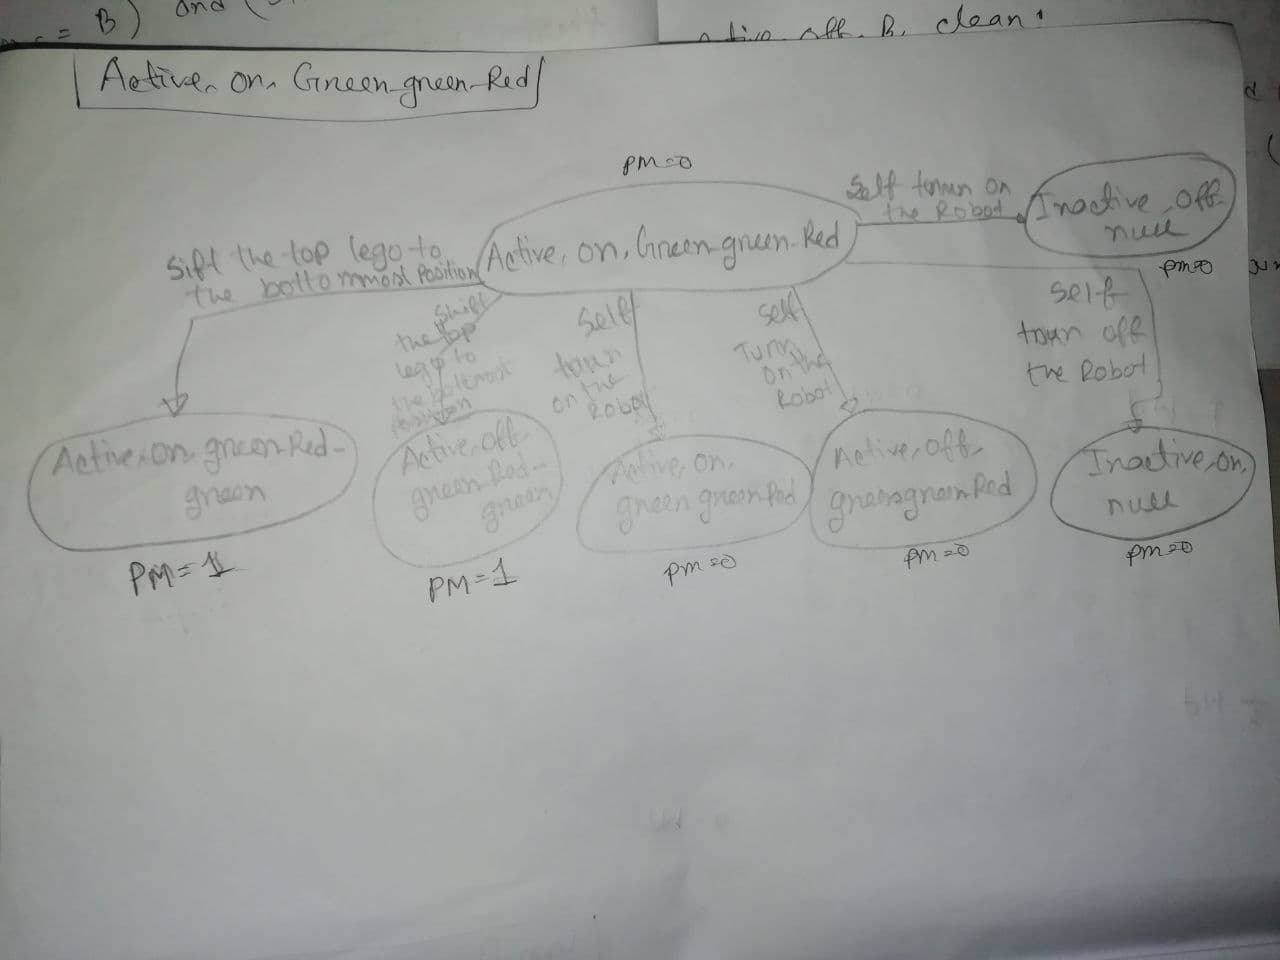 = B) and (
active off. B. clean.
Active, on, Green-green-Red
PM=0
Self turn on
the Robot
Inactive, off,
null
PM=0
Active, on, Green-green-Red
Sift the top lego to
the bottommost position
Shift
the top
lego to
the
position
Self
turn
on
the
Robot
Self
Turn
on the
Robot
Self
turn off
the Robot
Active, on, green-Red-
green
PM=1
Active, off
green-Red-
green
PM=1
Active, on,
green green Red
PM=0
Active, off,
green green Red
PM=0
Inactive, on,
null
PM=0